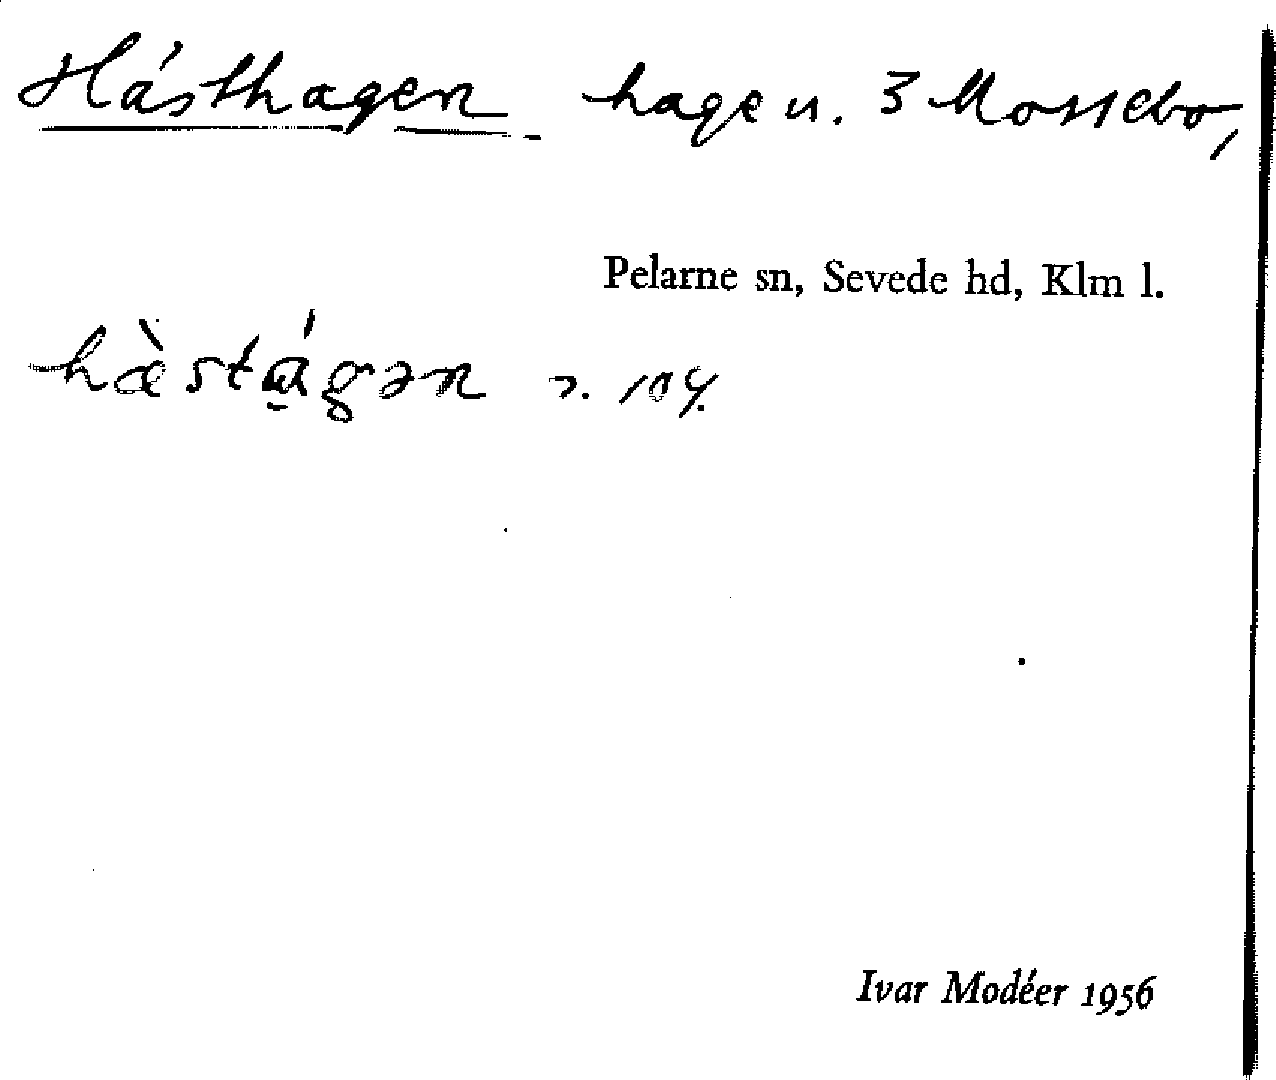 Hästhagen hage u. 3 Mossebo,
Pelarne sn, Sevede hd, Klm l.
hæ̀stágən
Ivar Modéer 1956